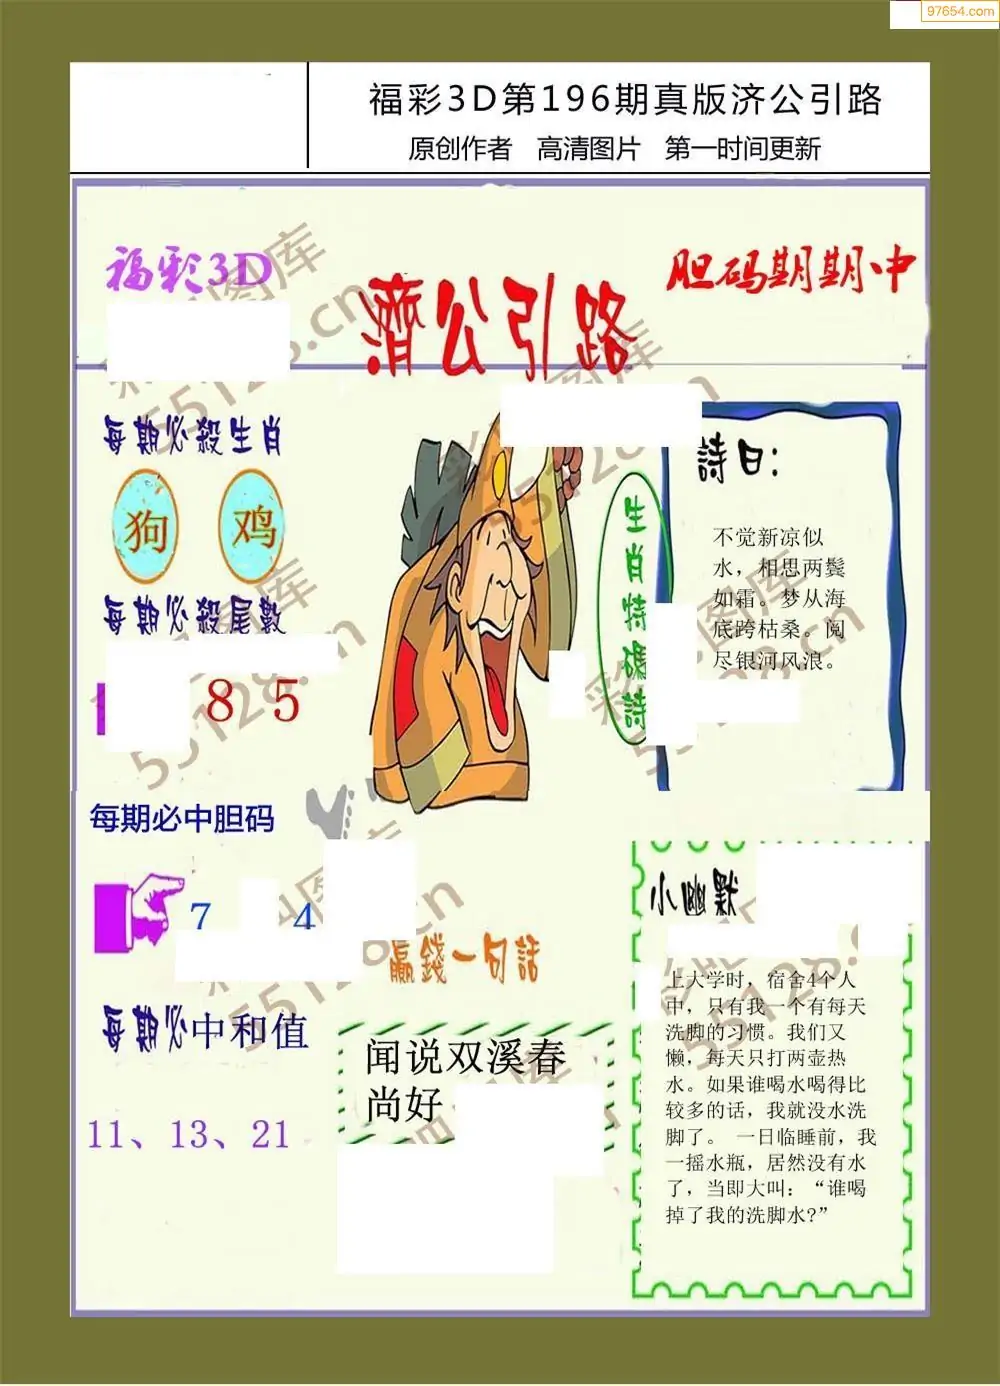 97654.com
福彩3D第196期真版济公引路
原创作者 高清图片 第一时间更新
福彩3D
胆码期期中
濟公引路
每期必殺生肖
狗 鸡
每期必殺尾數
8 5
生肖特碼詩
詩曰：
不觉新凉似
水，相思两鬓
如霜。梦从海
底跨枯桑。阅
尽银河风浪。
每期必中胆码
7 4
每期必中和值
11、13、21
贏錢一句話
闻说双溪春
尚好
小幽默
上大学时，宿舍4个人
中，只有我一个有每天
洗脚的习惯。我们又
懒，每天只打两壶热
水。如果谁喝水喝得比
较多的话，我就没水洗
脚了。 一日临睡前，我
一摇水瓶，居然没有水
了，当即大叫：“谁喝
掉了我的洗脚水?”
55128.cn
55128.cn
55128.cn